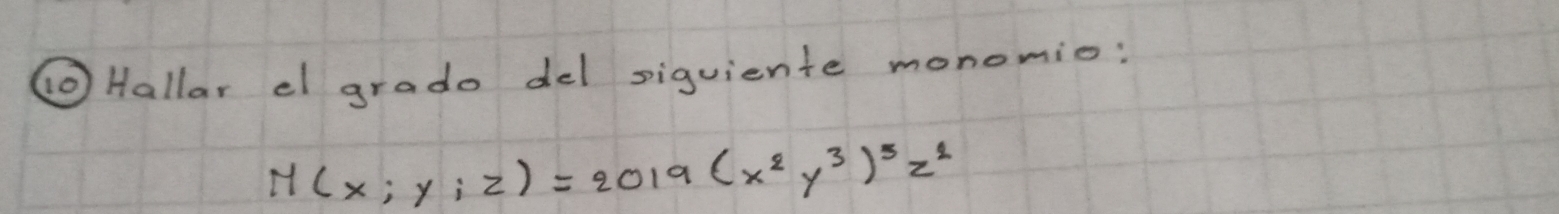 ⑩ Hallar el grado del siguiente monomio:
M(x; y; z) = 2019 (x² y³)⁵ z²